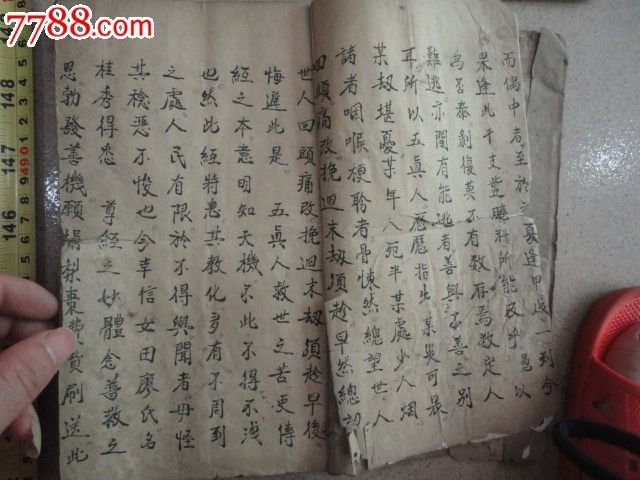 7788.com
中国收藏热线
而偶中者至於夏逢甲戌一到今
果逢此干支豈臆料所能及乎愚以
為否泰剝復莫不有数存焉数定人
難逃亦間有能逃者善與不善之別
耳所以五真人歷歷指出某災可畏
某刼堪憂某年八宛半某處少人烟
諸者咽喉梗聆者骨悚然總望世人
回頭痛改挽迴末刼須趁早然總
世人回頭痛改挽迴末刼須趁早後
悔遲此是五真人救世之苦更傳
經之本意明知天機不此不得不洩
也然此經將悉其教化多有不周到
之處人民有限於不得與聞者毋怪
其稔惡不悛也今幸信女田廖氏名
桂秀得悉尊經之妙體念善救之
恩勃發善機願捐梨棗費貲刷送此
148
147
146